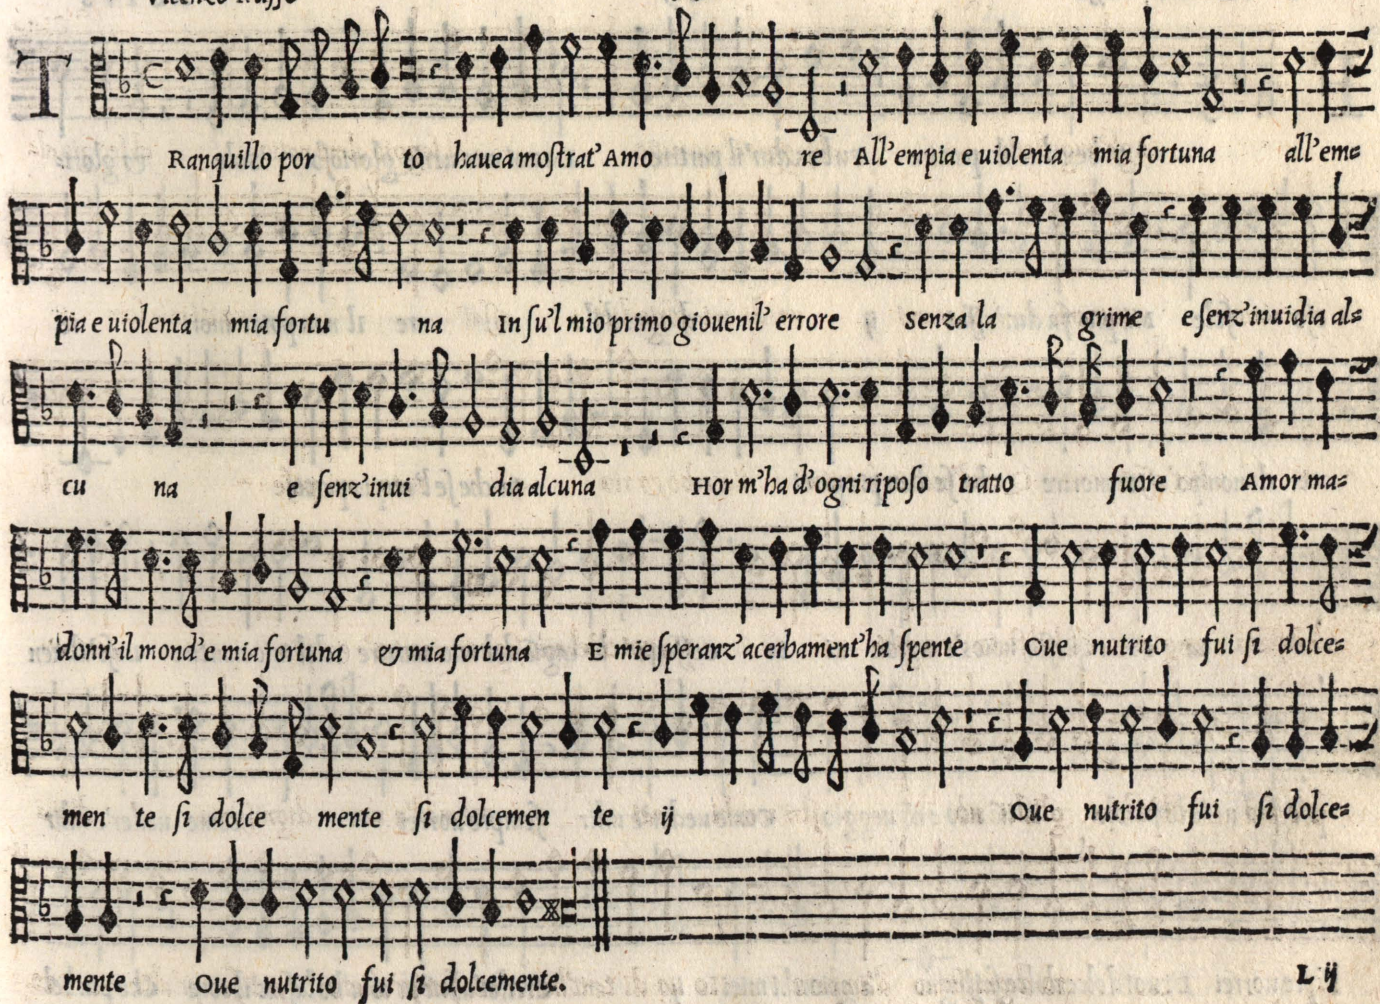 T
Ranquillo por to hauea moſtrat' Amo re All' empia e uiolenta mia fortuna all' em=
pia e uiolenta mia fortu na In ſu'l mio primo giouenil' errore Senza la grime e ſenz'inuidia al=
cu na e ſenz'inui dia alcuna Hor m'ha d'ogni ripoſo tratto fuore Amor ma=
donn' il mond' e mia fortuna & mia fortuna E mie ſperanz' acerbament' ha ſpente Oue nutrito fui ſi dolce=
men te ſi dolce mente ſi dolcemen te ij Oue nutrito fui ſi dolce=
mente Oue nutrito fui ſi dolcemente.
L ij